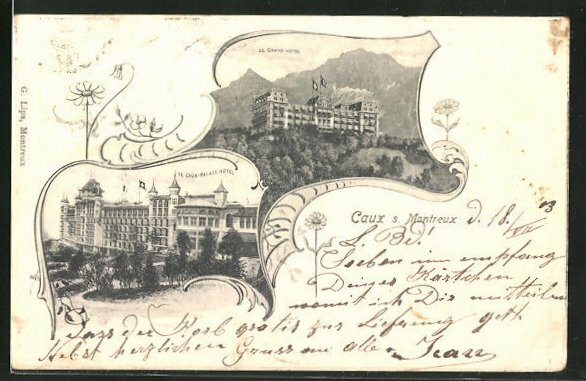 LE GRAND HOTEL
LE CAUX-PALACE HOTEL
G. Lips, Montreux
Caux s. Montreux d. 18./VII 03
L. Bé!
Soeben im empfang
Deines Kärtchen
womit ich Dir mitteilen
Dass der Korb gratis zur Lieferung geth
Nebst herzlichen Gruss an alle Jean